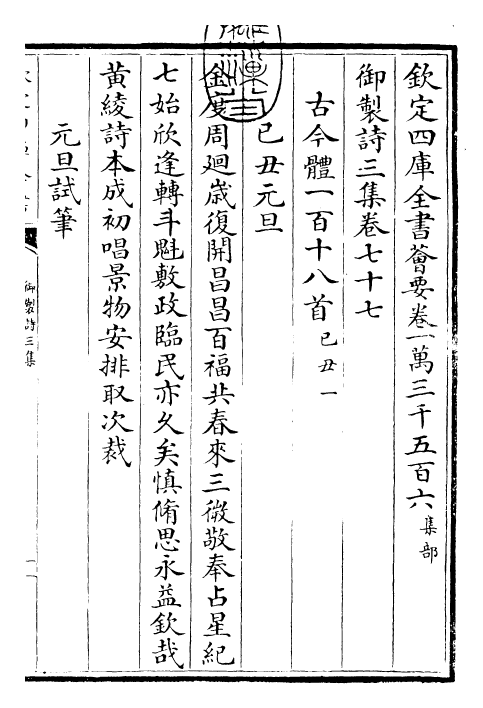 欽定四庫全書薈要卷一萬三千五百六 集部
御製詩三集卷七十七
古今體一百十八首 己丑一
己丑元旦
金度周廻歲復開昌昌百福共春來三微敬奉占星紀
七始欣逢轉斗魁敷政臨民亦久矣慎脩思永益欽哉
黃綾詩本成初唱景物安排取次裁
元旦試筆
御製詩三集
一